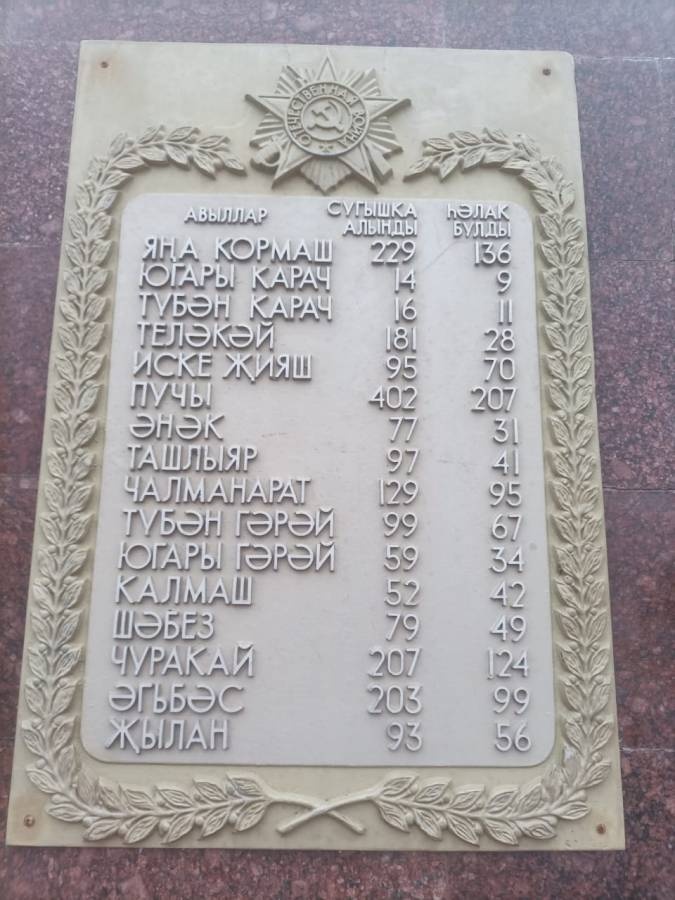 ОТЕЧЕСТВЕННАЯ ВОЙНА
АВЫЛЛАР СУГЫШКА АЛЫНДЫ ҺӘЛАК БУЛДЫ
ЯҢА КОРМАШ 229 136
ЮГАРЫ КАРАЧ 14 9
ТҮБӘН КАРАЧ 16 11
ТЕЛӘКӘЙ 181 28
ИСКЕ ҖИЯШ 95 70
ПУЧЫ 402 207
ӘНӘК 77 31
ТАШЛЫЯР 97 41
ЧАЛМАНАРАТ 129 95
ТҮБӘН ГӘРӘЙ 99 67
ЮГАРЫ ГӘРӘЙ 59 34
КАЛМАШ 52 42
ШӘБЕЗ 79 49
ЧУРАКАЙ 207 124
ӘГЬБӘС 203 99
ҖЫЛАН 93 56